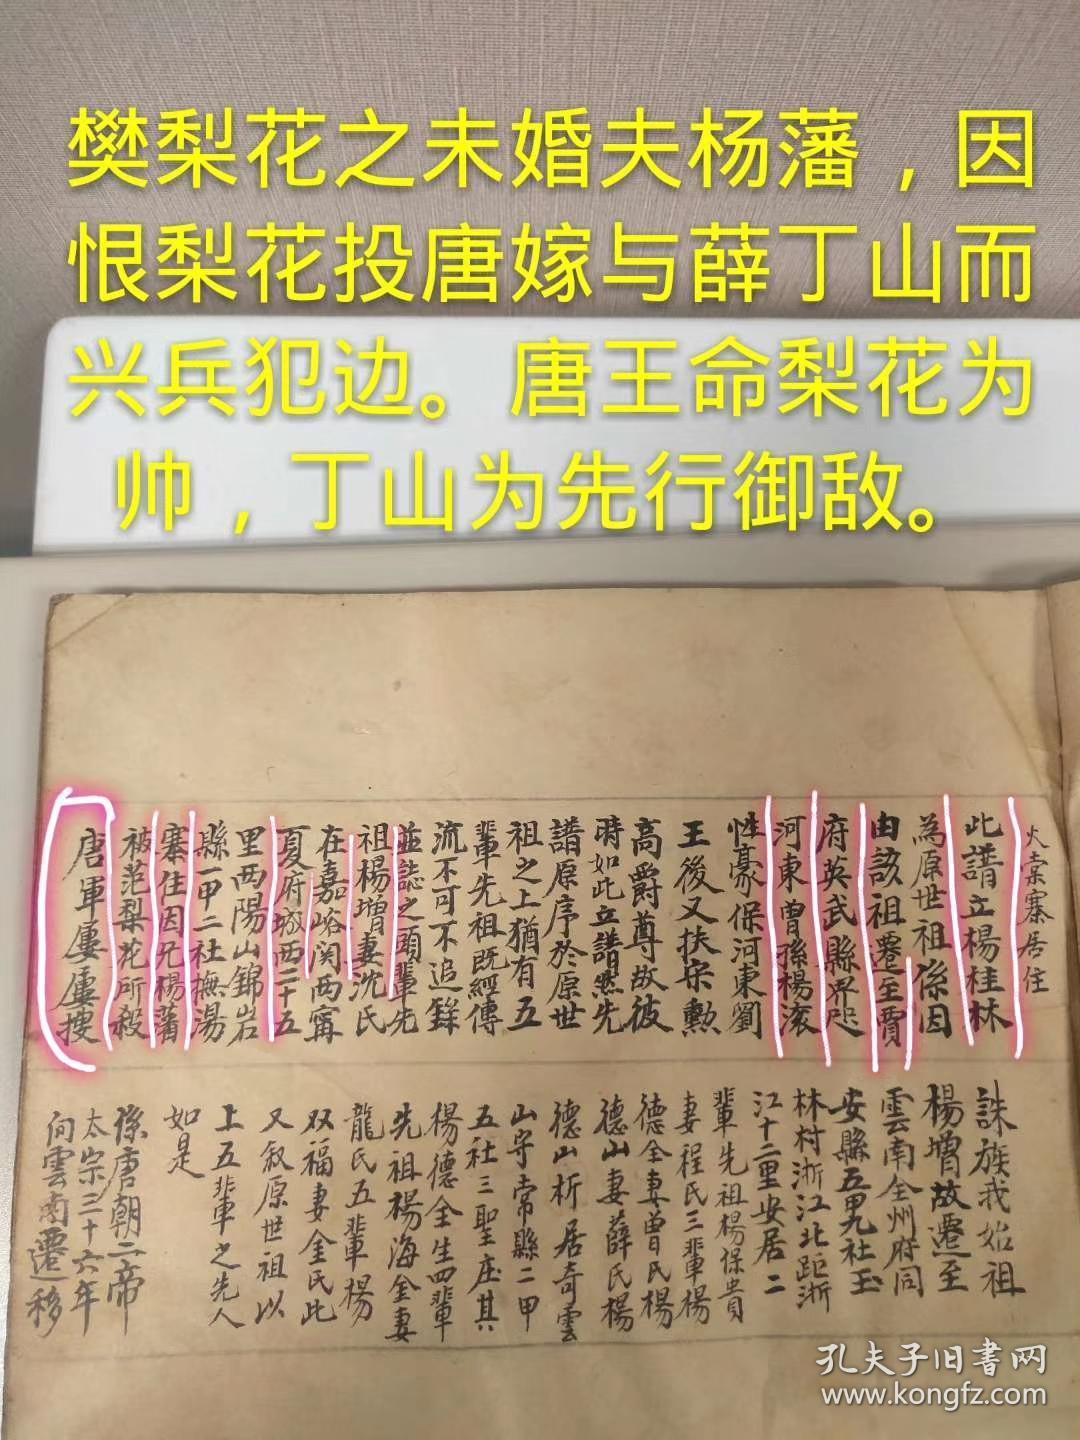 樊梨花之未婚夫杨藩，因
恨梨花投唐嫁与薛丁山而
兴兵犯边。唐王命梨花为
帅，丁山为先行御敌。
火棠寨居住
此譜立楊桂林
為原世祖係因
由該祖遷至賈
府英武縣界
河東曾孫楊滚
性豪保河東劉
王後又扶宋勳
高爵尊故彼
時如此立譜然先
譜原序於原世
祖之上猶有五
輩先祖既經傳
流不可不追錄
並誌之頭輩先
祖楊增妻沈氏
在嘉峪关西寗
夏府城西二十五
里西陽山錦岩
縣一甲二社撫湯
寨住因兄楊藩
被范梨花所殺
唐軍屢屢搜
誅族我始祖
楊增故遷至
雲南全州府同
安縣五甲九社玉
林村浙江北距浙
江十二里安居二
輩先祖楊保貴
妻程氏三輩楊
德全妻曾氏楊
德山妻薛氏楊
德山析居奇雲
山守常縣二甲
五社三聖庄其
楊德全生四輩
先祖楊海金妻
龍氏五輩楊
双福妻金氏此
又叙原世祖以
上五輩之先人
如是
係唐朝二帝
太宗三十六年
向雲南遷移
孔夫子旧書网
www.kongfz.com